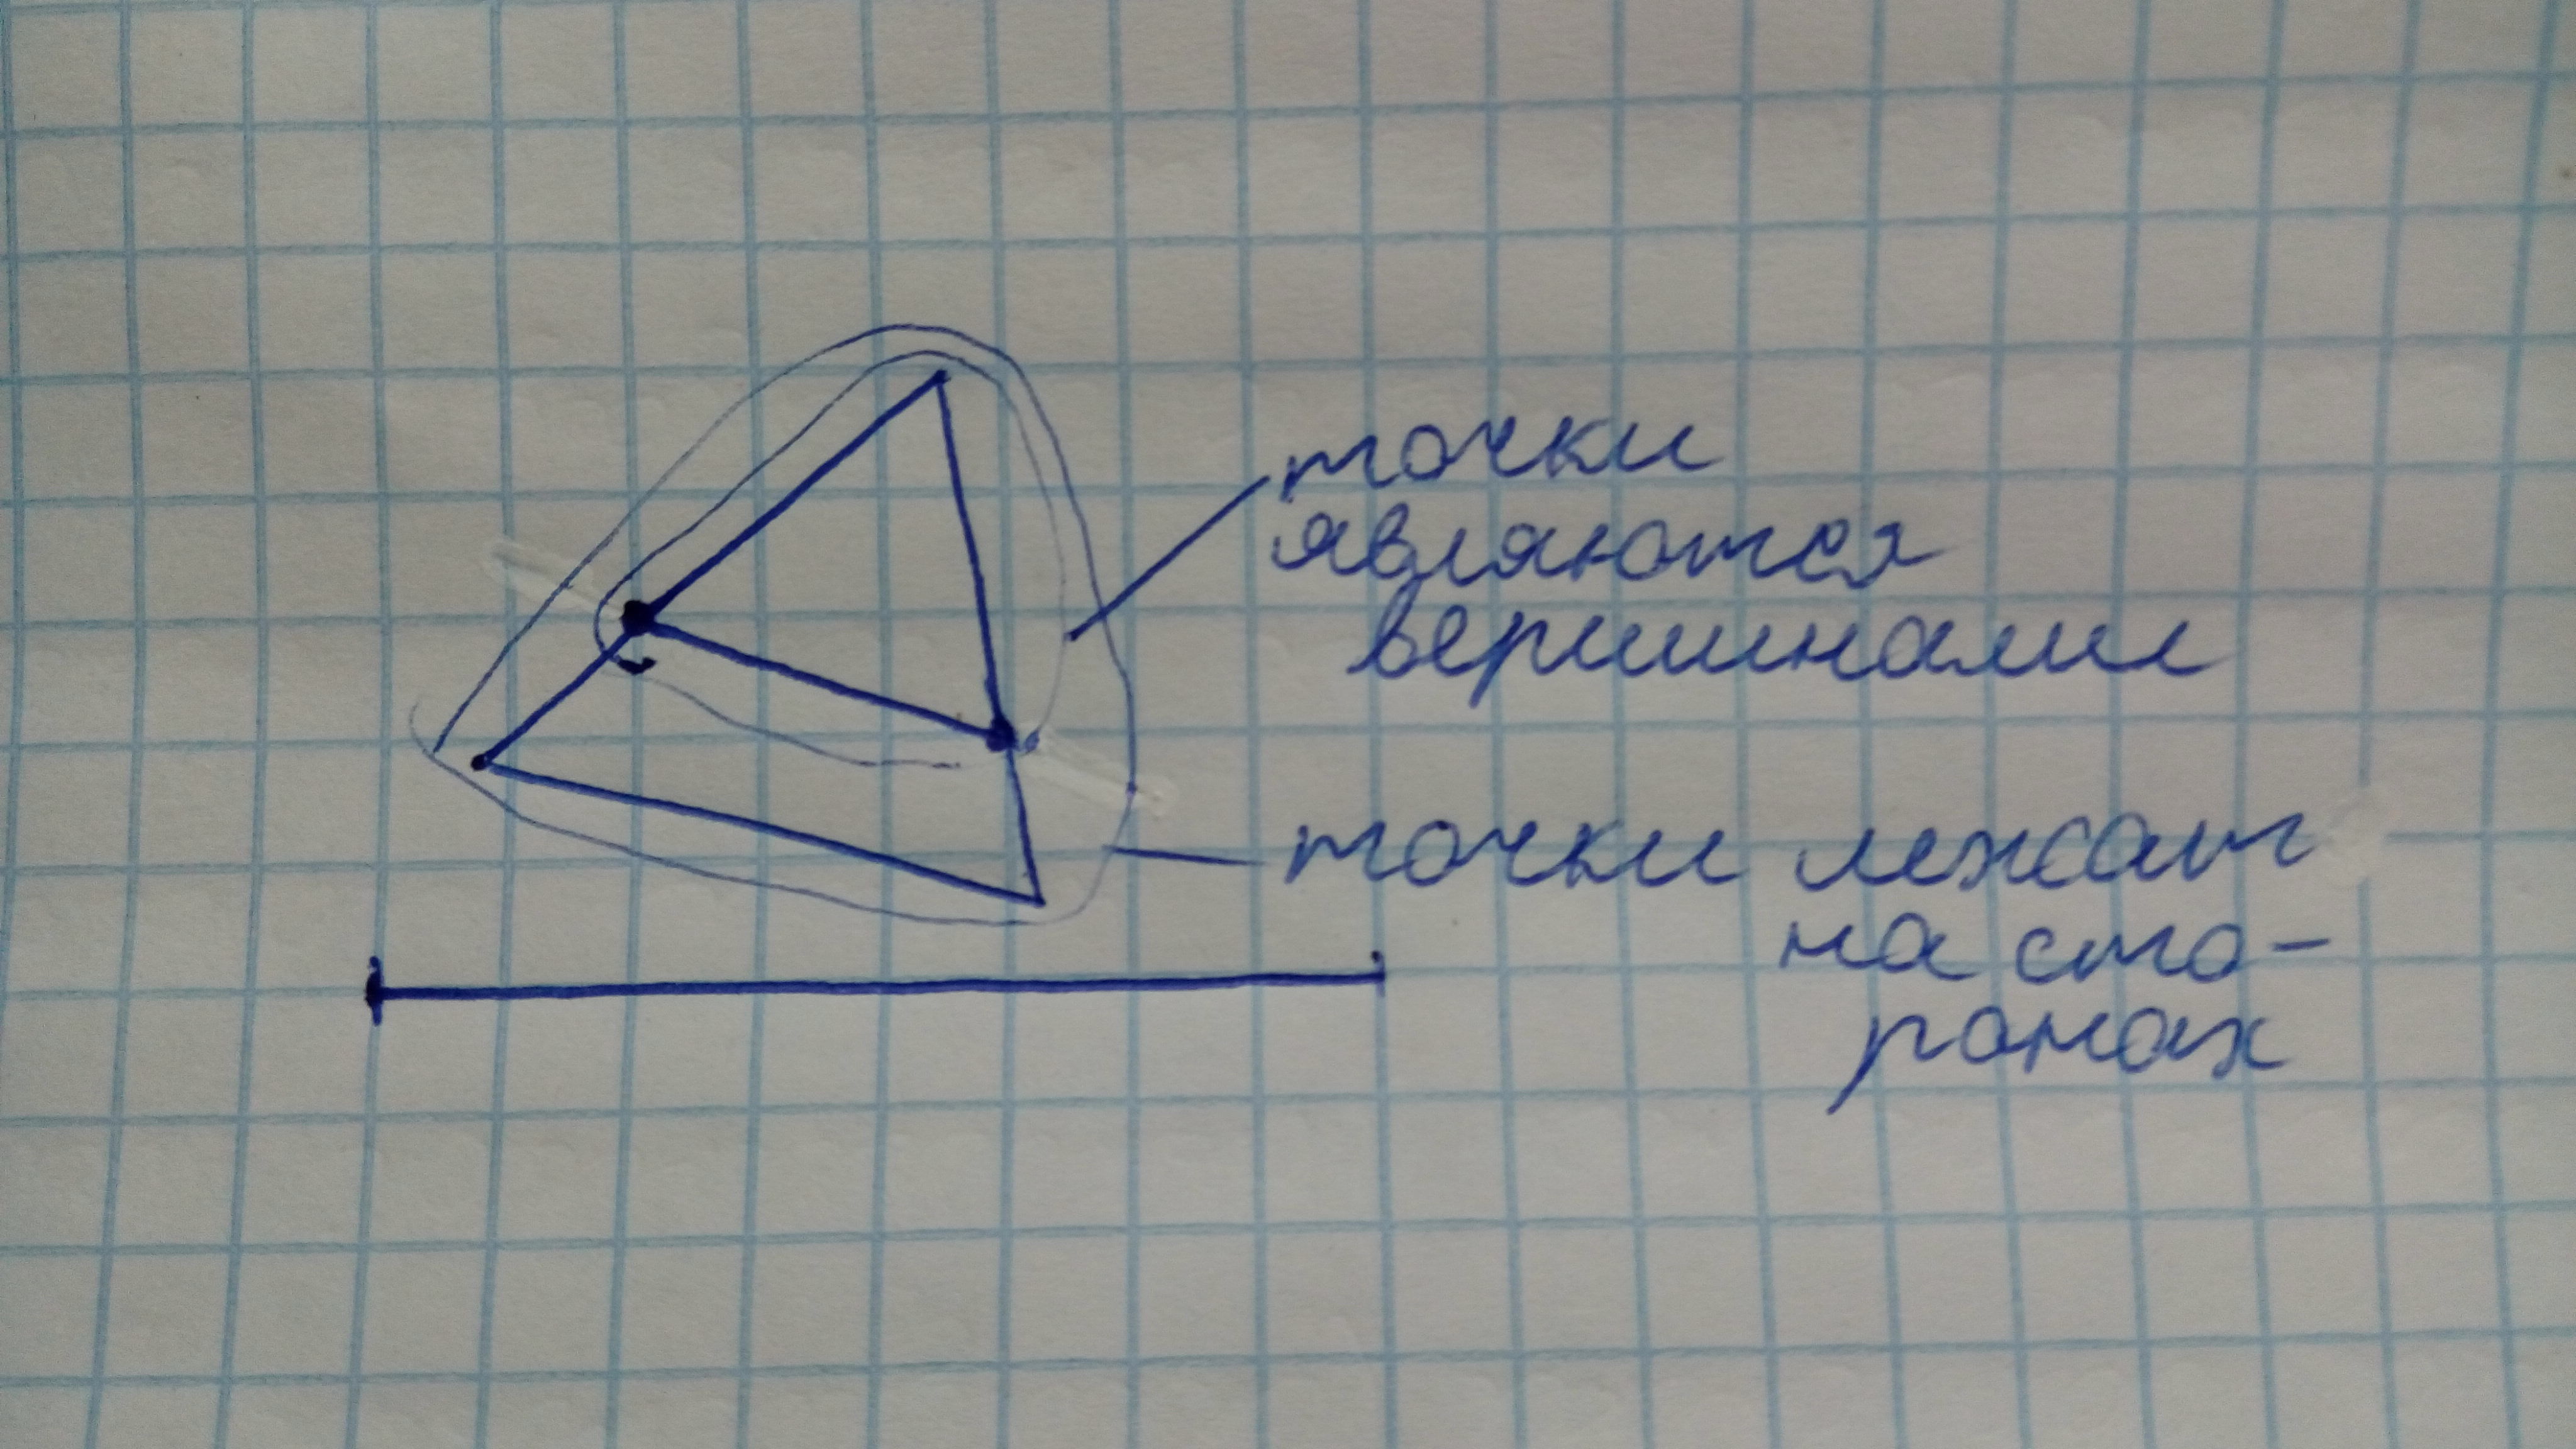 точки
являются
вершинами
точки лежат
на сто-
ронах